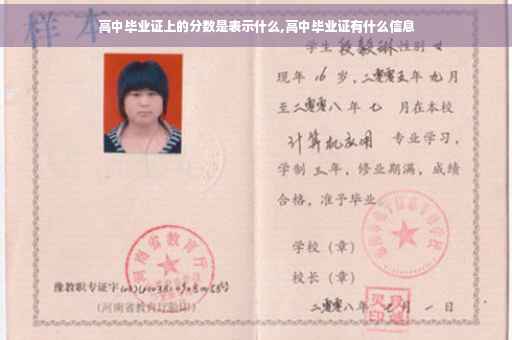 高中毕业证上的分数是表示什么,高中毕业证有什么信息
样本
学生 段毅琳 性别 女
现年 16 岁,二零零五年 九 月
至二零零八年 七 月在本校
计算机应用 专业学习,
学制 三 年, 修业期满, 成绩
合格, 准予毕业
学校 (章)
校长 (章)
二零零八年 七 月 一 日
河南省教育厅
豫教职专证字
(河南省教育厅验印)